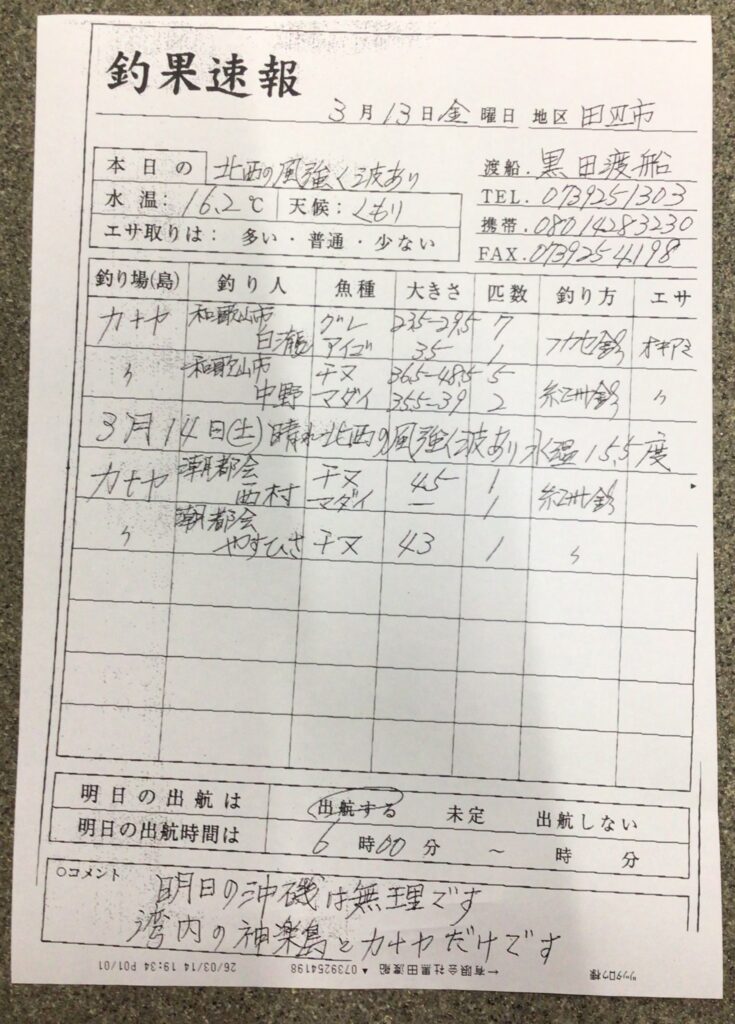 釣果速報
3月13日金曜日 地区 田辺市
本日の 北西の風強く波あり
水温: 16.2℃ 天候: くもり
エサ取りは: 多い・普通・少ない
渡船. 黒田渡船
TEL. 0739251303
携帯. 08014283230
FAX. 0739254198
釣り場(島) 釣り人 魚種 大きさ 匹数 釣り方 エサ
カナヤ 和歌山市 グレ 23.5-29.5 7
白瀧 アイゴ 35 1 フカセ釣 オキアミ
〃 和歌山市 チヌ 36.5-48.5 5
中野 マダイ 35.5-39 2 紀州釣 〃
3月14日(土)晴れ北西の風強く波あり水温15.5度
カナヤ 潮都会 チヌ 45 1
西村 マダイ ー 1 紀州釣
〃 潮都会
やすひさ チヌ 43 1 〃
明日の出航は 出航する 未定 出航しない
明日の出航時間は 6時00分 ～ 時 分
○コメント
明日の沖磯は無理です
湾内の神楽島とカナヤだけです
ツッタロウ様
←有限会社黒田渡船 ▲0739254198 26/03/14 19:34 P01/01